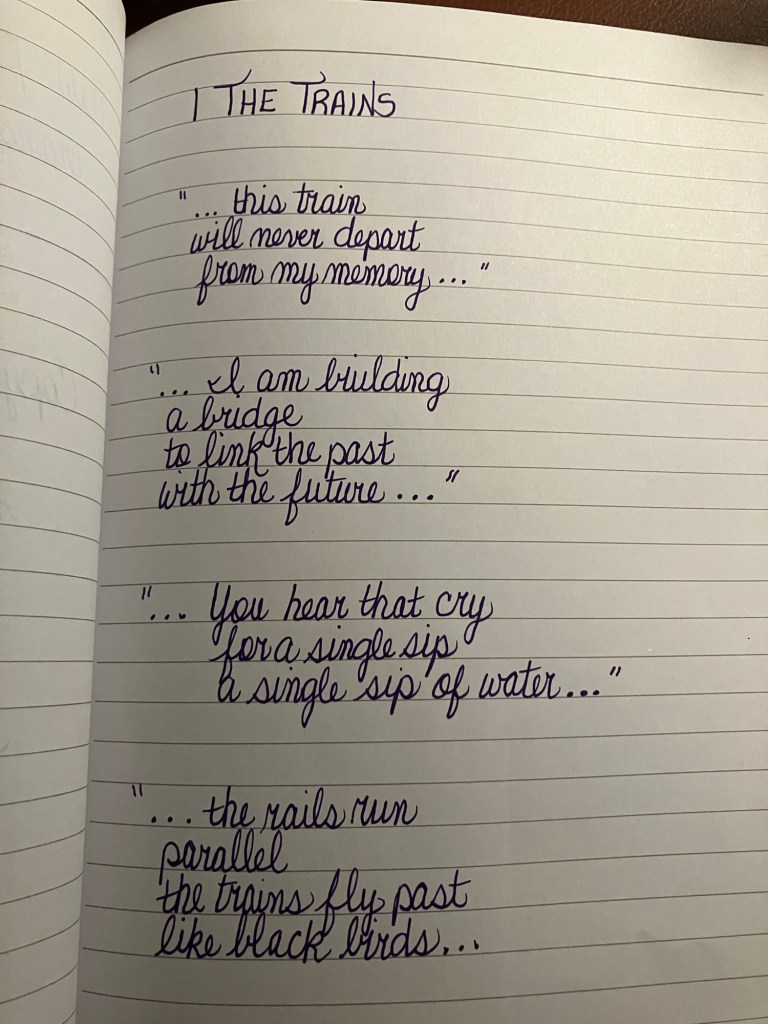 1 THE TRAINS
"... this train
will never depart
from my memory ..."
"... I am building
a bridge
to link the past
with the future ..."
"... You hear that cry
for a single sip
a single sip of water..."
"... the rails run
parallel
the trains fly past
like black birds...